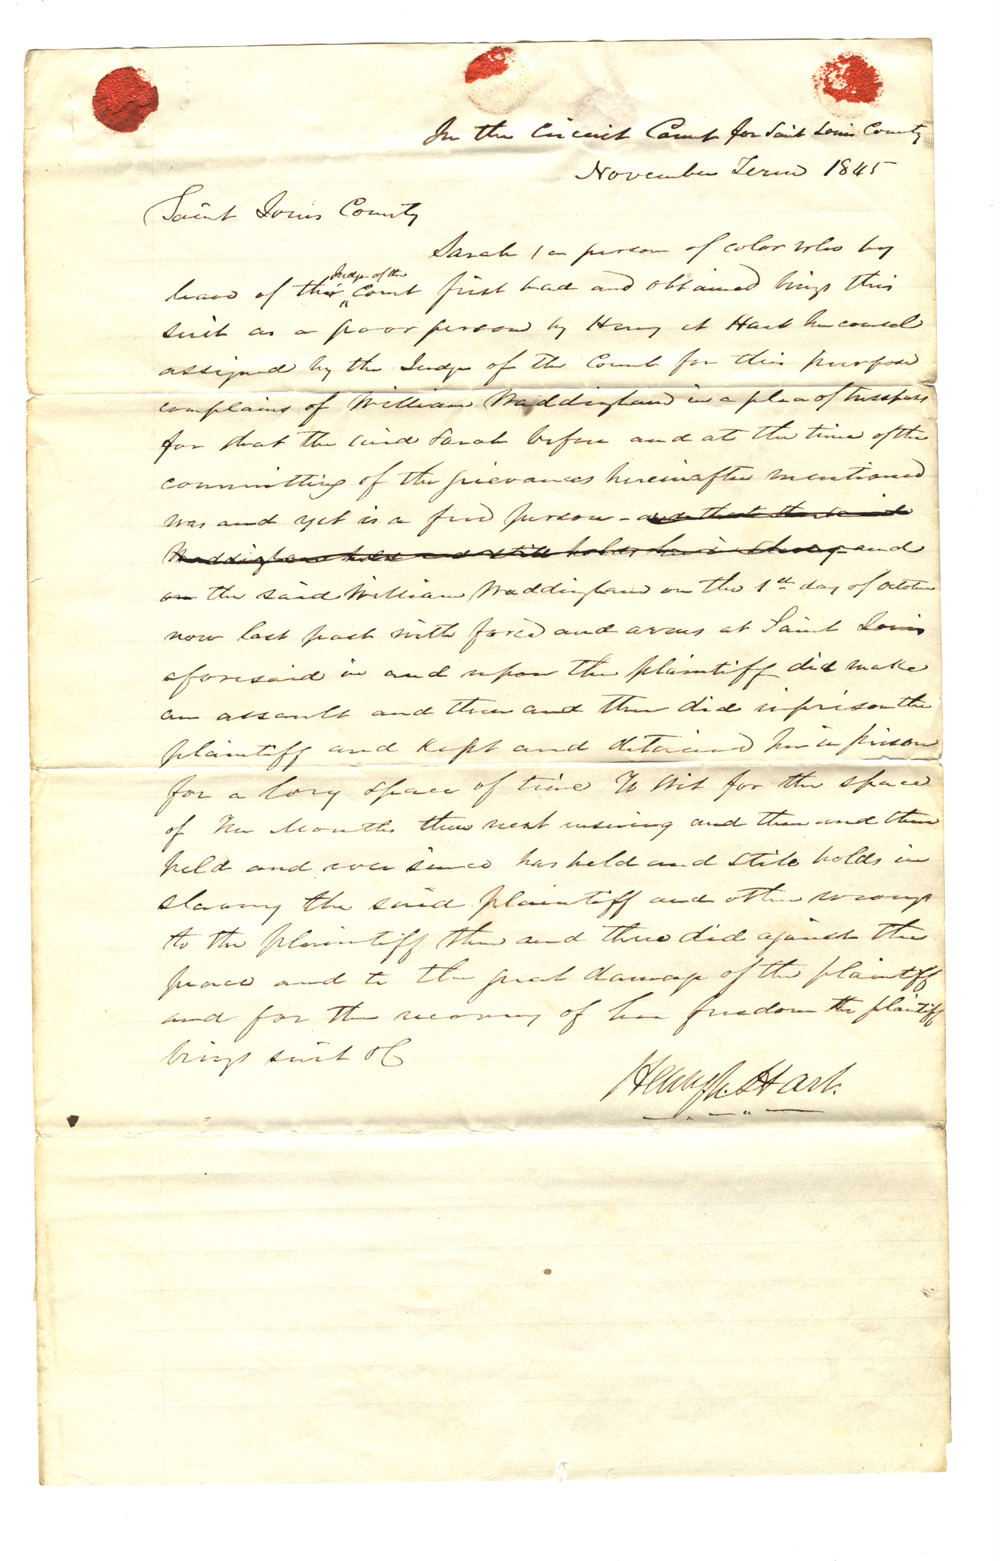 In the Circuit Court for Saint Louis County
November Term 1845
Saint Louis County
Sarah (a person of color who by
Judge of the
leave of the Court first had and obtained brings this
suit as a poor person by Henry A Hart her counsel
assigned by the Judge of the Court for this purpose
complains of William Waddingham in a plea of trespass
for that the said Sarah before and at the time of the
committing of the grievances hereinafter mentioned
was and yet is a free person - and that the said
Waddingham held and still holds her in slavery and
on the said William Waddingham on the 1st day of October
now last past with force and arms at Saint Louis
aforesaid in and upon the plaintiff did make
an assault and then and there did inprison the
plaintiff and kept and detained her in prison
for a long space of time To Wit for the space
of Months then next ensuing and then and there
held and ever since has held and still holds in
slavery the said plaintiff and other wrongs
to the plaintiff then and there did against the
peace and to the great damage of the plaintiff
and for the recovery of her freedom the plaintiff
brings suit &c
Henry A. Hart.